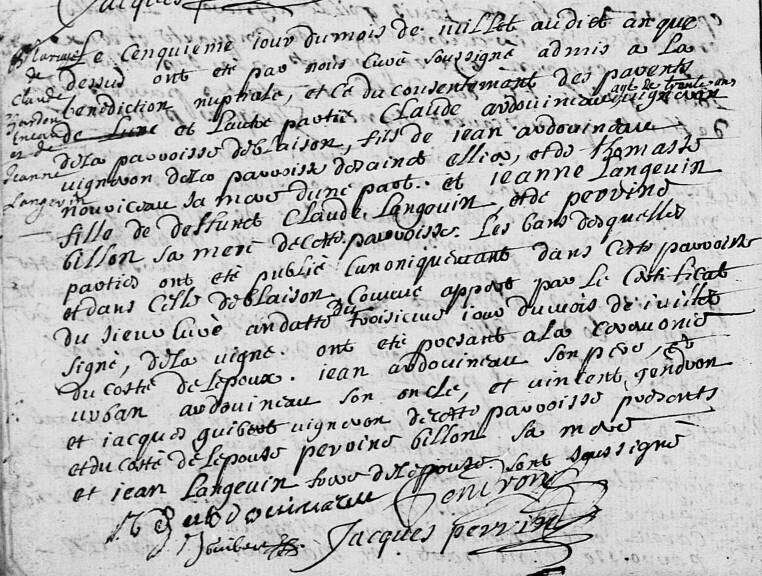 Jacques
Mariage
de
Claude
Jeanne
Langevin
Le cenquieme iour du mois de iuillet audict an que
dessus ont été par nous Curé soussigné admis a la
benediction nuptiale, et ce du consentement des parents
de l'une et l'autre partie Claude ardouineau vigneron
agé de trente ans
de la parroisse de blaison, fils de iean ardouineau
vigneron de la parroisse de sainct ellier, et de thomasse
nouviceau sa mere d'une part. et ieanne Langevin
fille de deffunct Claude Langevin, et de perrine
billon sa mere de cette parroisse. Les bans desquelles
parties ont eté publié Canoniquement dans cette parroisse
et dans celle de blaison, Comme appert par le Certificat
du sieur Curé en datte du troisieme iour du mois de iuillet
signé, de la vigne. ont eté present a la ceremonie
du costé de l'epoux. iean ardouineau son pere, et
urban ardouineau son oncle, et vincent gendron
et iacques guibert vigneron de cette parroisse presents
et du costé de l'epouse perrine billon sa mere
et iean Langevin frere de l'epouse sont soussigné
Jacques perrin